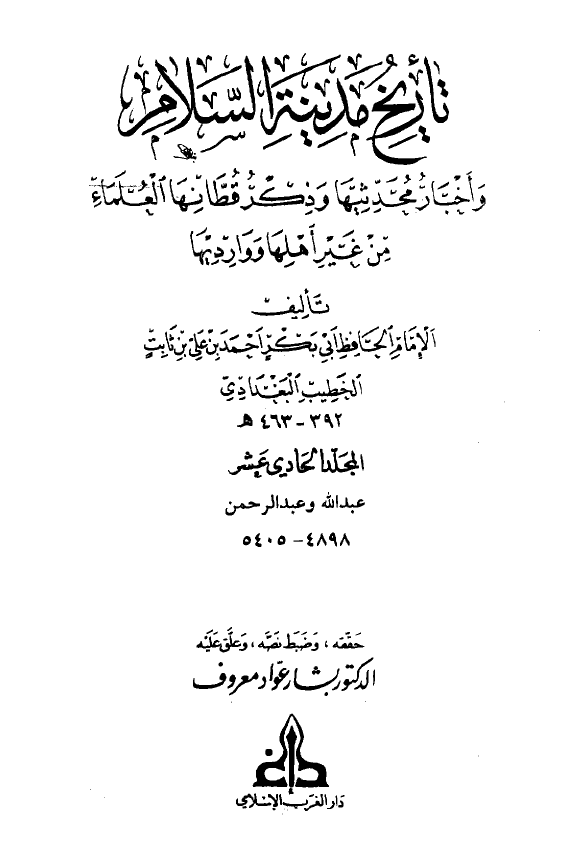 تأريخ مدينة السلام
وأخبار محدثيها وذكر قطانها العلماء
من غير أهلها وواردیها
تأليف
الإمام الحافظ أبي بكر أحمد بن علي بن ثابت
الخطيب البغدادي
٣٩٢ - ٤٦٣ هـ
المجلد الحادي عشر
عبدالله وعبدالرحمن
٤٨٩٨ - ٥٤٠٥
حققه، وضبط نصه، وعلق عليه
الدكتور بشار عواد معروف
دار الغرب الإسلامي